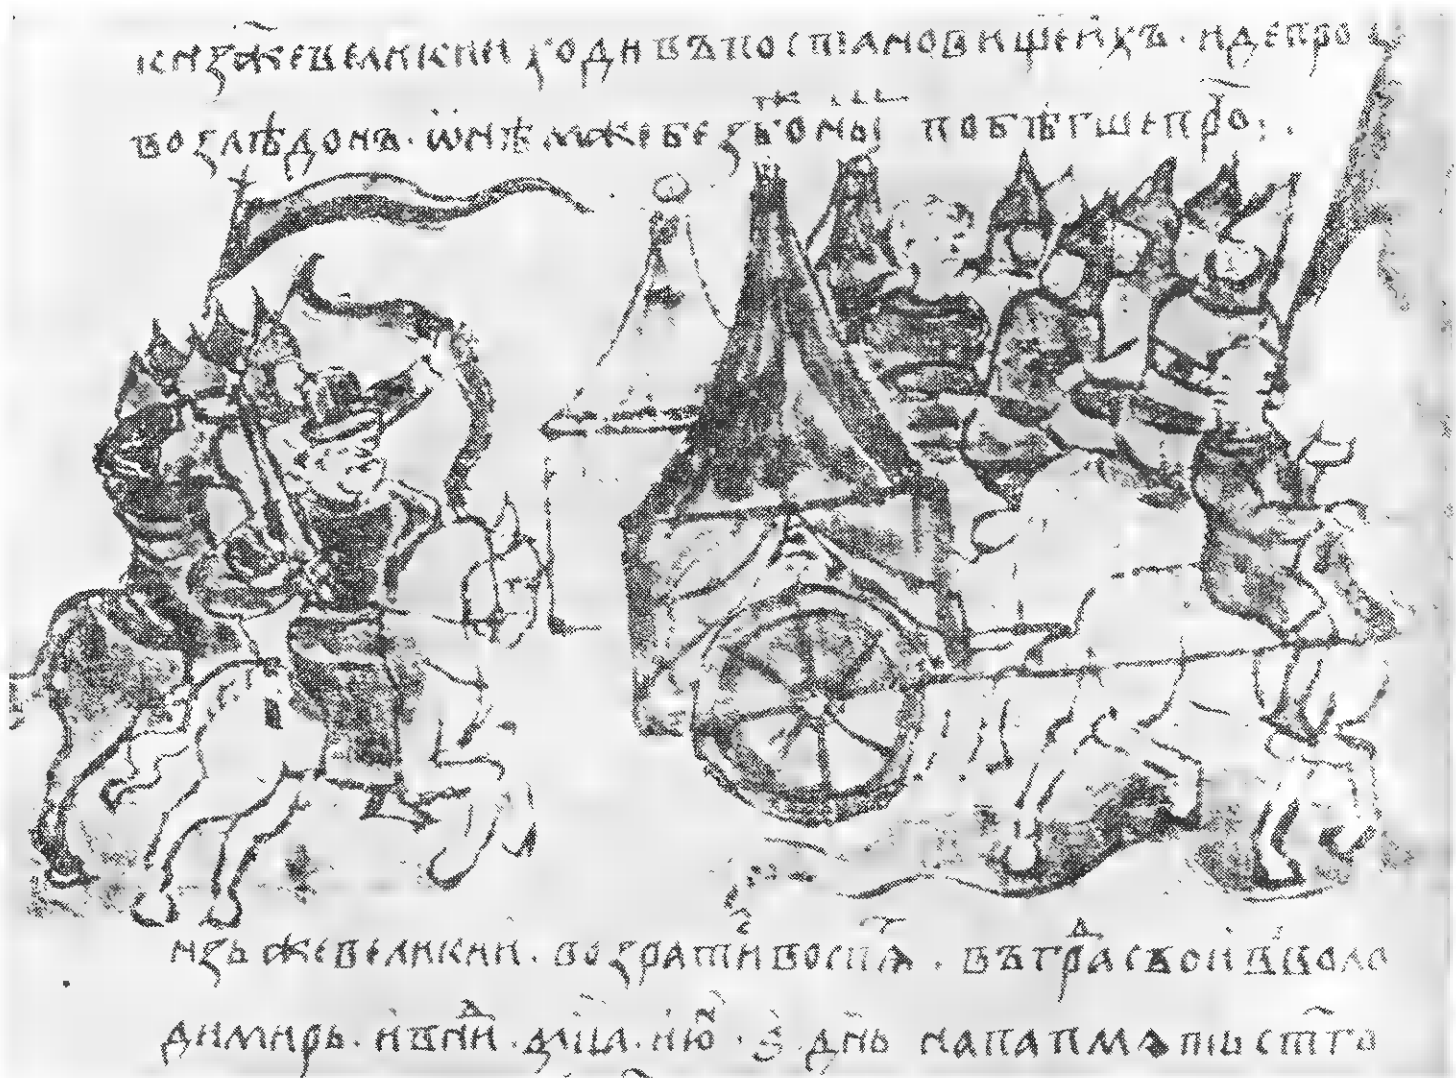 кн҃зже великии ходи въпостановищеихъ · идепро
возлѣдонъ · ѡнѣмже без ны побѣгшепро:.
нзьжевеликии · возративосѧ · въгрⷣасвои вволо
димирь · ивнⷣи · мц҃а · июⷩ · з҃ · дн҃ь напапмѧть ст҃го